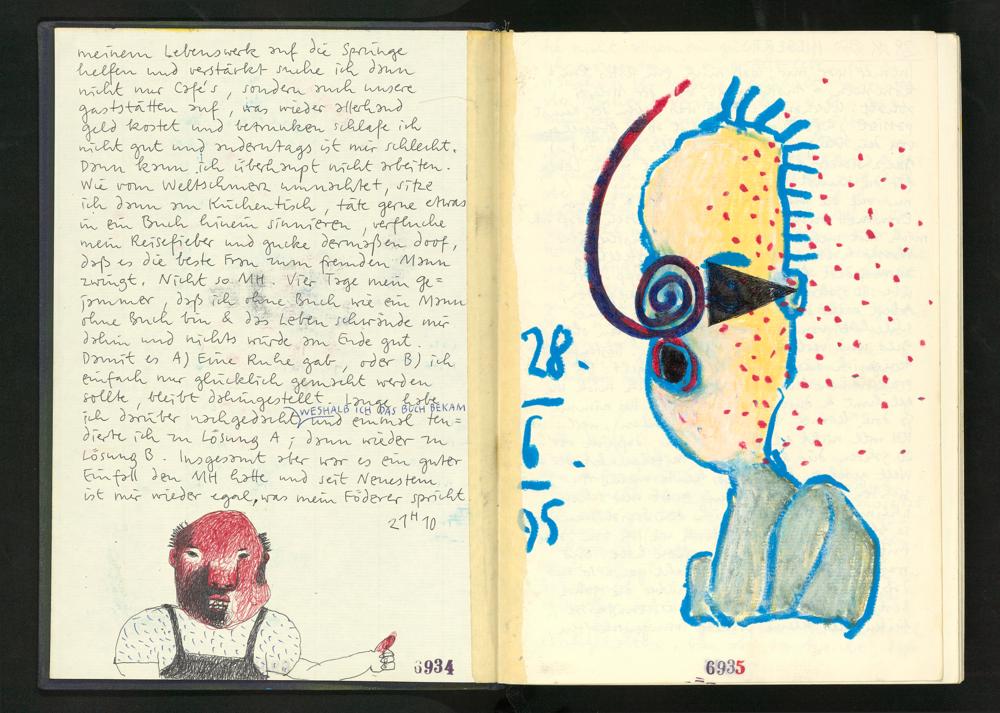 meinem Lebenswerk auf die Sprünge
helfen und verstärkt suche ich dann
nicht nur Café's, sondern auch unsere
gaststätten auf, was wieder allerhand
geld kostet und betrunken schlafe ich
nicht gut und anderntags ist mir schlecht.
Dann kann ich überhaupt nicht arbeiten.
Wie vom Weltschmerz umnachtet, sitze
ich dann am Küchentisch, täte gerne etwas
in ein Buch hinein sinnieren, verfluche
mein Reisefieber und gucke dermaßen doof,
daß es die beste Frau zum fremden Mann
zwingt. Nicht so MH. Vier Tage mein ge=
jammer, daß ich ohne Buch wie ein Mann
ohne Buch bin & das Leben schwände mir
dahin und nichts würde am Ende gut.
Damit es A) Eine Ruhe gab, oder B) ich
einfach nur glücklich gemacht werden
sollte, bleibt dahingestellt. Lange habe
ich darüber nachgedacht, WESHALB ICH DAS BUCH BEKAM und einmal ten=
dierte ich zu Lösung A, dann wieder zu
Lösung B. Insgesamt aber war es ein guter
Einfall den MH hatte und seit Neuestem
ist mir wieder egal, was mein Föderer spricht.
21H 10
6934
28.
6.
95
6935